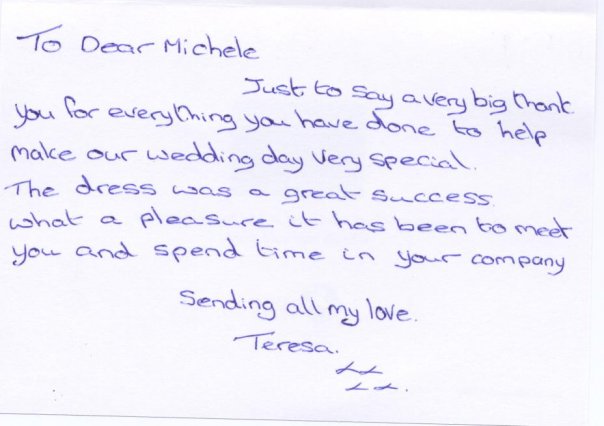 To Dear Michele
Just to say a very big thank
you for everything you have done to help
make our wedding day very special.
The dress was a great success.
what a pleasure it has been to meet
you and spend time in your company
Sending all my love.
Teresa.
xx
xx.